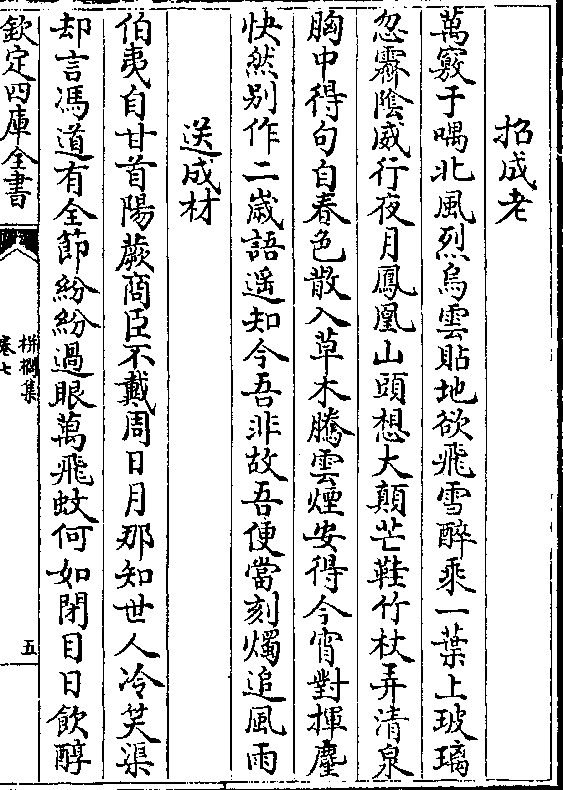 招成老
萬竅于喁北風烈烏雲貼地欲飛雪醉乘一葉上玻璃
忽霽陰威行夜月鳳凰山頭想大顛芒鞋竹杖弄清泉
胸中得句自春色散入草木騰雲煙安得今宵對揮麈
快然别作二嵗語遥知今吾非故吾便當刻燭追風雨
送成材
伯夷自甘首陽蕨商臣不戴周日月那知世人冷笑渠
却言馮道有全節紛紛過眼萬飛蚊何如閉目日飲醇
欽定四庫全書
栟櫚集
卷七
五